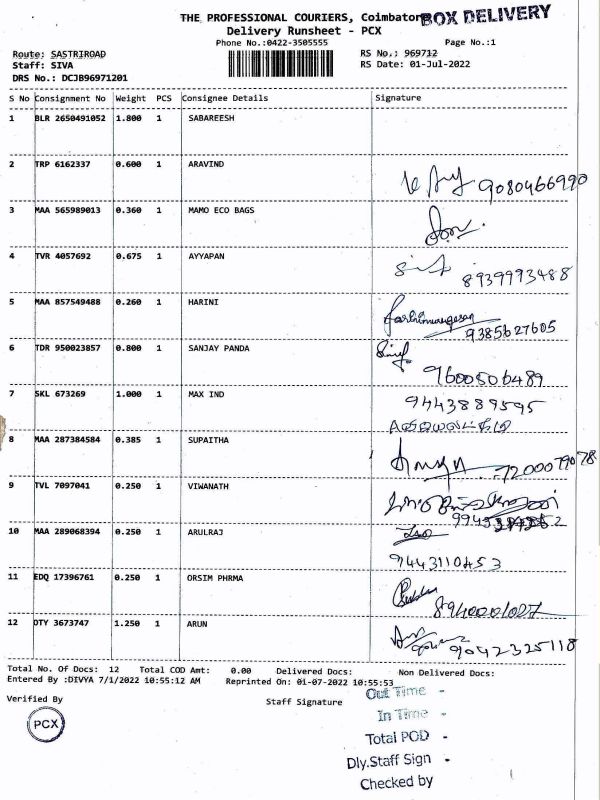 THE PROFESSIONAL COURIERS, Coimbator
BOX DELIVERY
Delivery Runsheet - PCX
Phone No.:0422-3505555
Page No.:1
Route: SASTRIROAD
RS No.: 969712
Staff: SIVA
RS Date: 01-Jul-2022
DRS No.: DCJB96971201
S No Consignment No Weight PCS Consignee Details Signature
1 BLR 2650491052 1.800 1 SABAREESH
2 TRP 6162337 0.600 1 ARAVIND
9080466990
3 MAA 565989013 0.360 1 MAMO ECO BAGS
4 TVR 4057692 0.675 1 AYYAPAN
8939993488
5 MAA 857549488 0.260 1 HARINI
9385627605
6 TDR 950023857 0.800 1 SANJAY PANDA
9600506489
7 SKL 673269 1.000 1 MAX IND
9443889595
8 MAA 287384584 0.385 1 SUPAITHA
7200079078
9 TVL 7097041 0.250 1 VIWANATH
10 MAA 289068394 0.250 1 ARULRAJ
9443110453
11 EDQ 17396761 0.250 1 ORSIM PHRMA
12 OTY 3673747 1.250 1 ARUN
9042325118
Total No. Of Docs: 12 Total COD Amt: 0.00 Delivered Docs: Non Delivered Docs:
Entered By :DIVYA 7/1/2022 10:55:12 AM Reprinted On: 01-07-2022 10:55:53
Verified By
Staff Signature
PCX
Out Time -
In Time -
Total POD -
Dly.Staff Sign -
Checked by